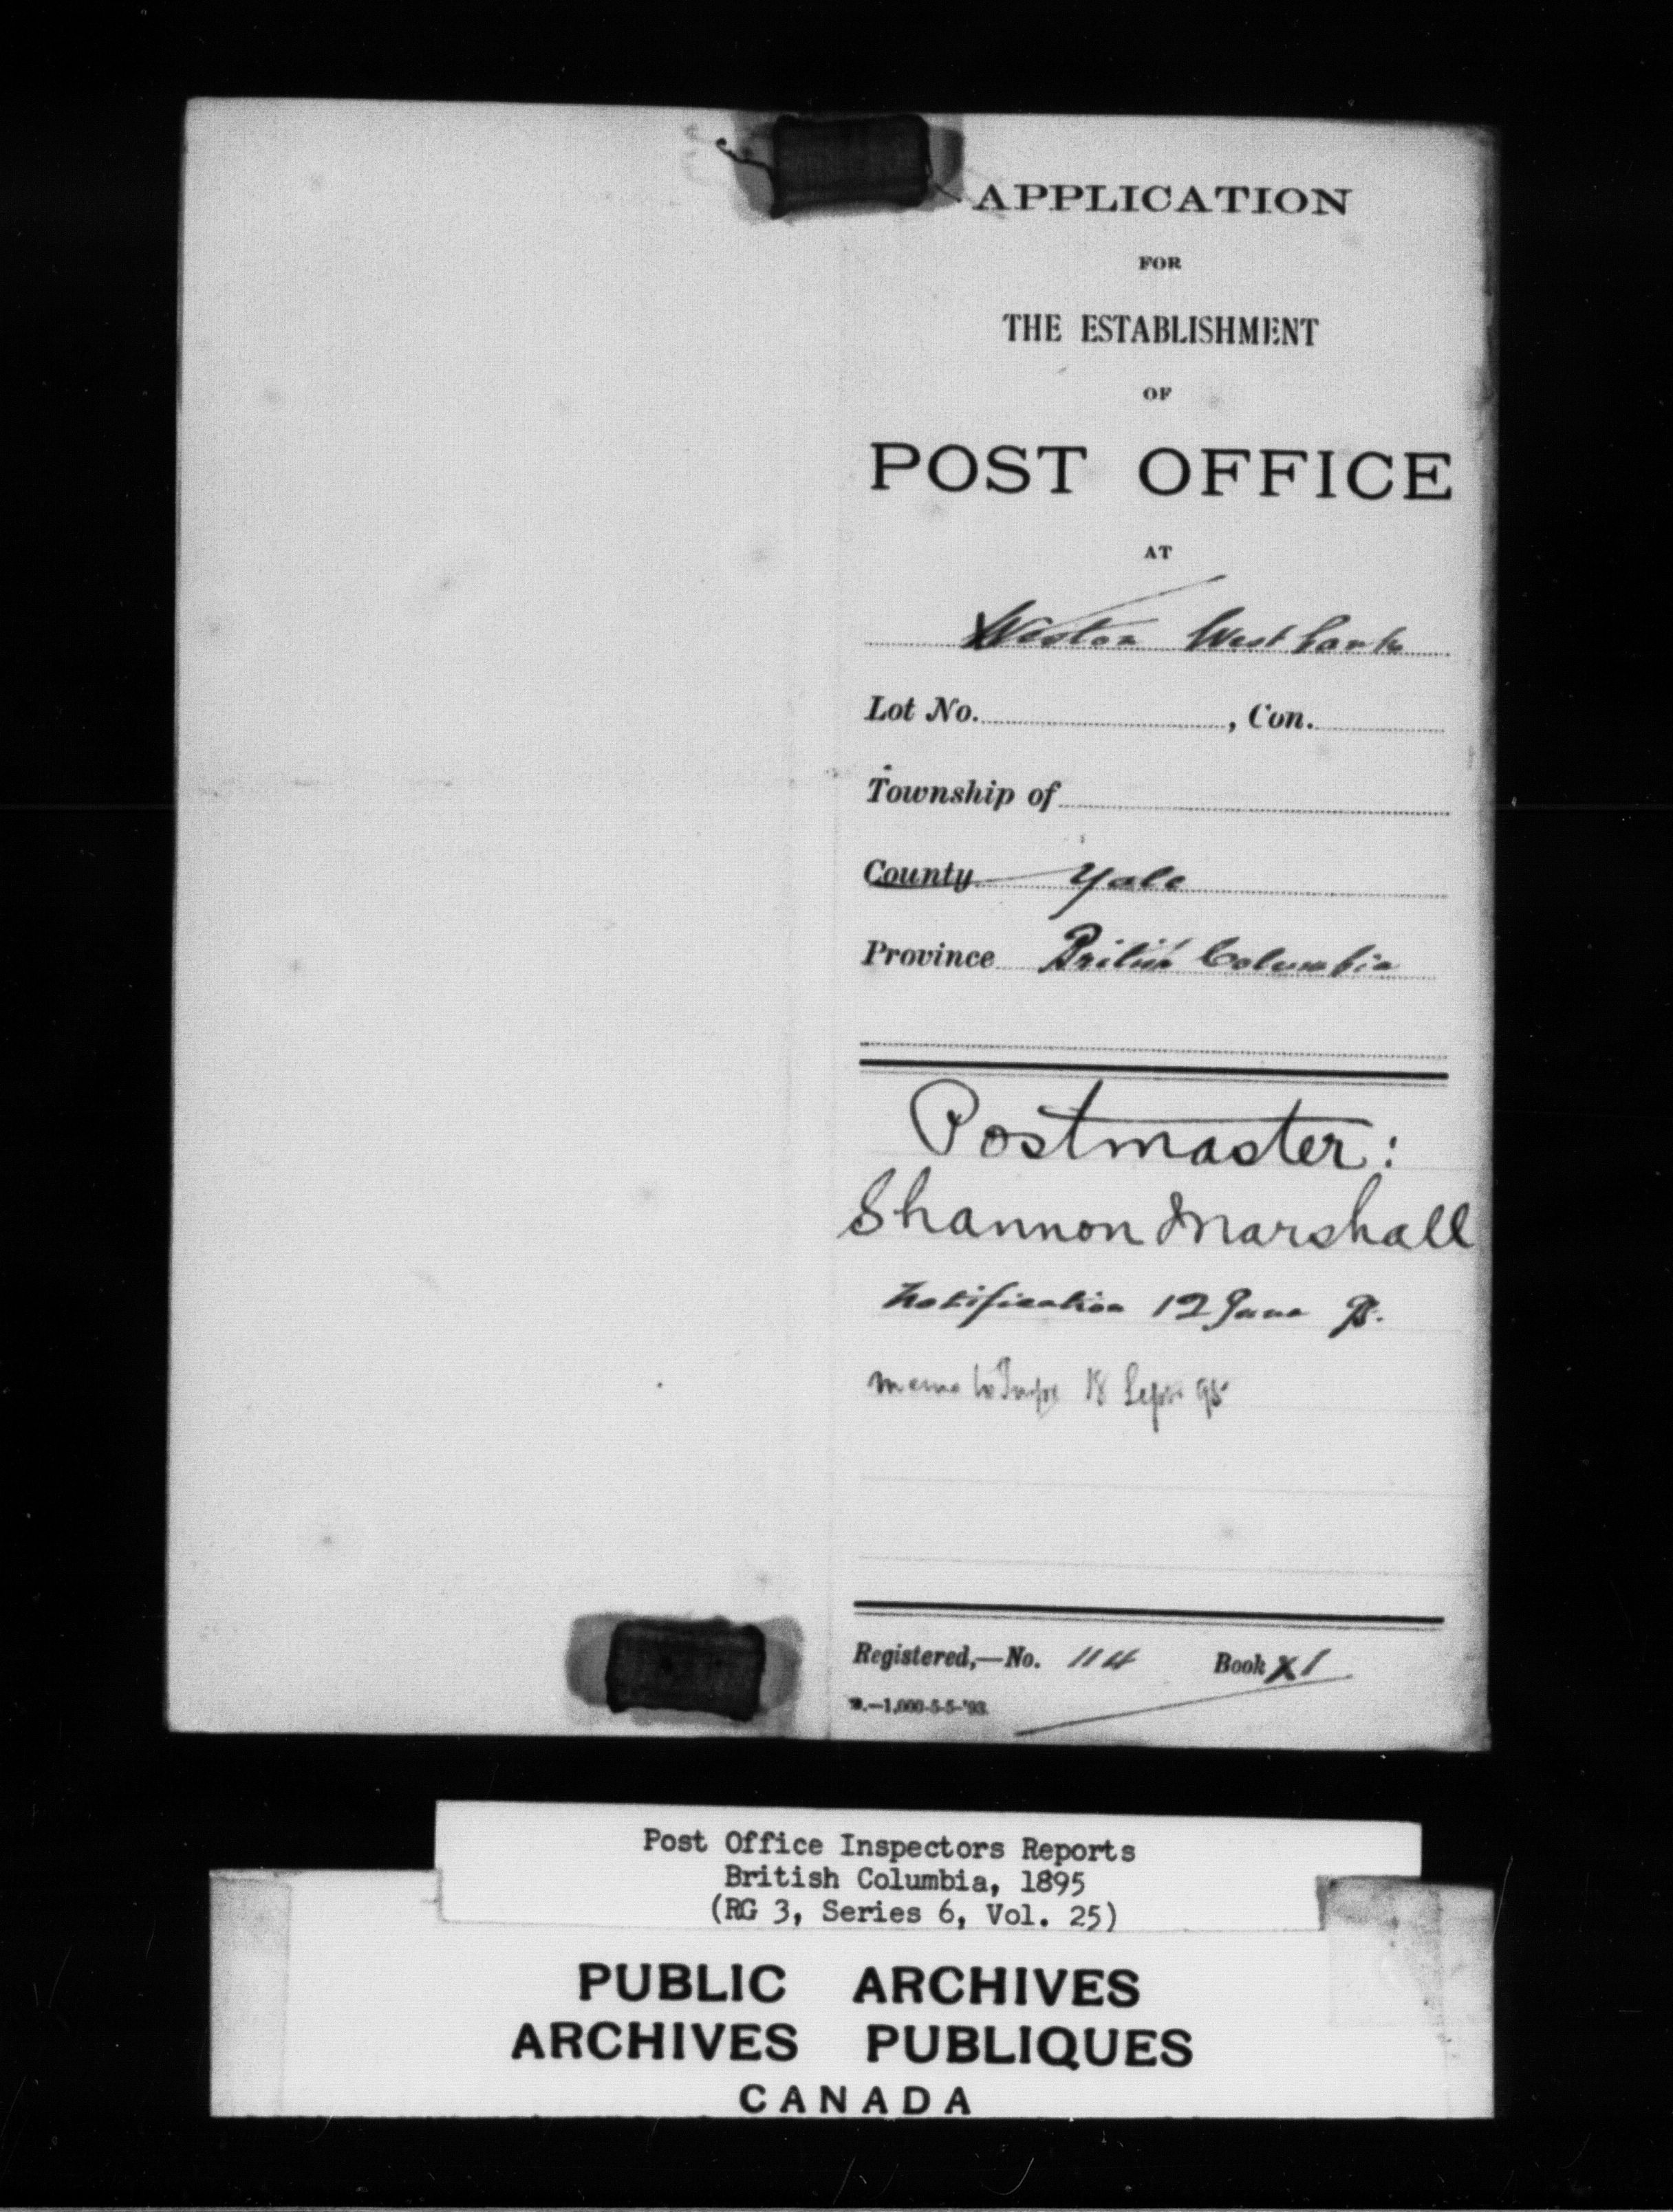 APPLICATION
FOR
THE ESTABLISHMENT
OF
POST OFFICE
AT
Weston Westbank
Lot No. , Con.
Township of
County Yale
Province British Columbia
Postmaster:
Shannon Marshall
Notification 12 June 95.
memo to Inspr 18 Sept 95
Registered,—No. 114 Book X1
—1,000-5-5-'93.
Post Office Inspectors Reports
British Columbia, 1895
(RG 3, Series 6, Vol. 25)
PUBLIC ARCHIVES
ARCHIVES PUBLIQUES
CANADA